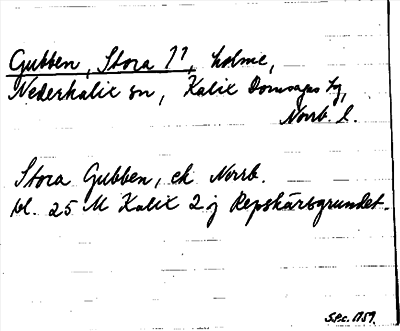 Gubben, Stora 11, holme,
Nederkalix sn, Kalix Domsagas tg,
Norrb. l.
Stora Gubben, ek Norrb.
bl. 25 M Kalix 2 j Repskärsgrundet.
S.P.C. 1759.